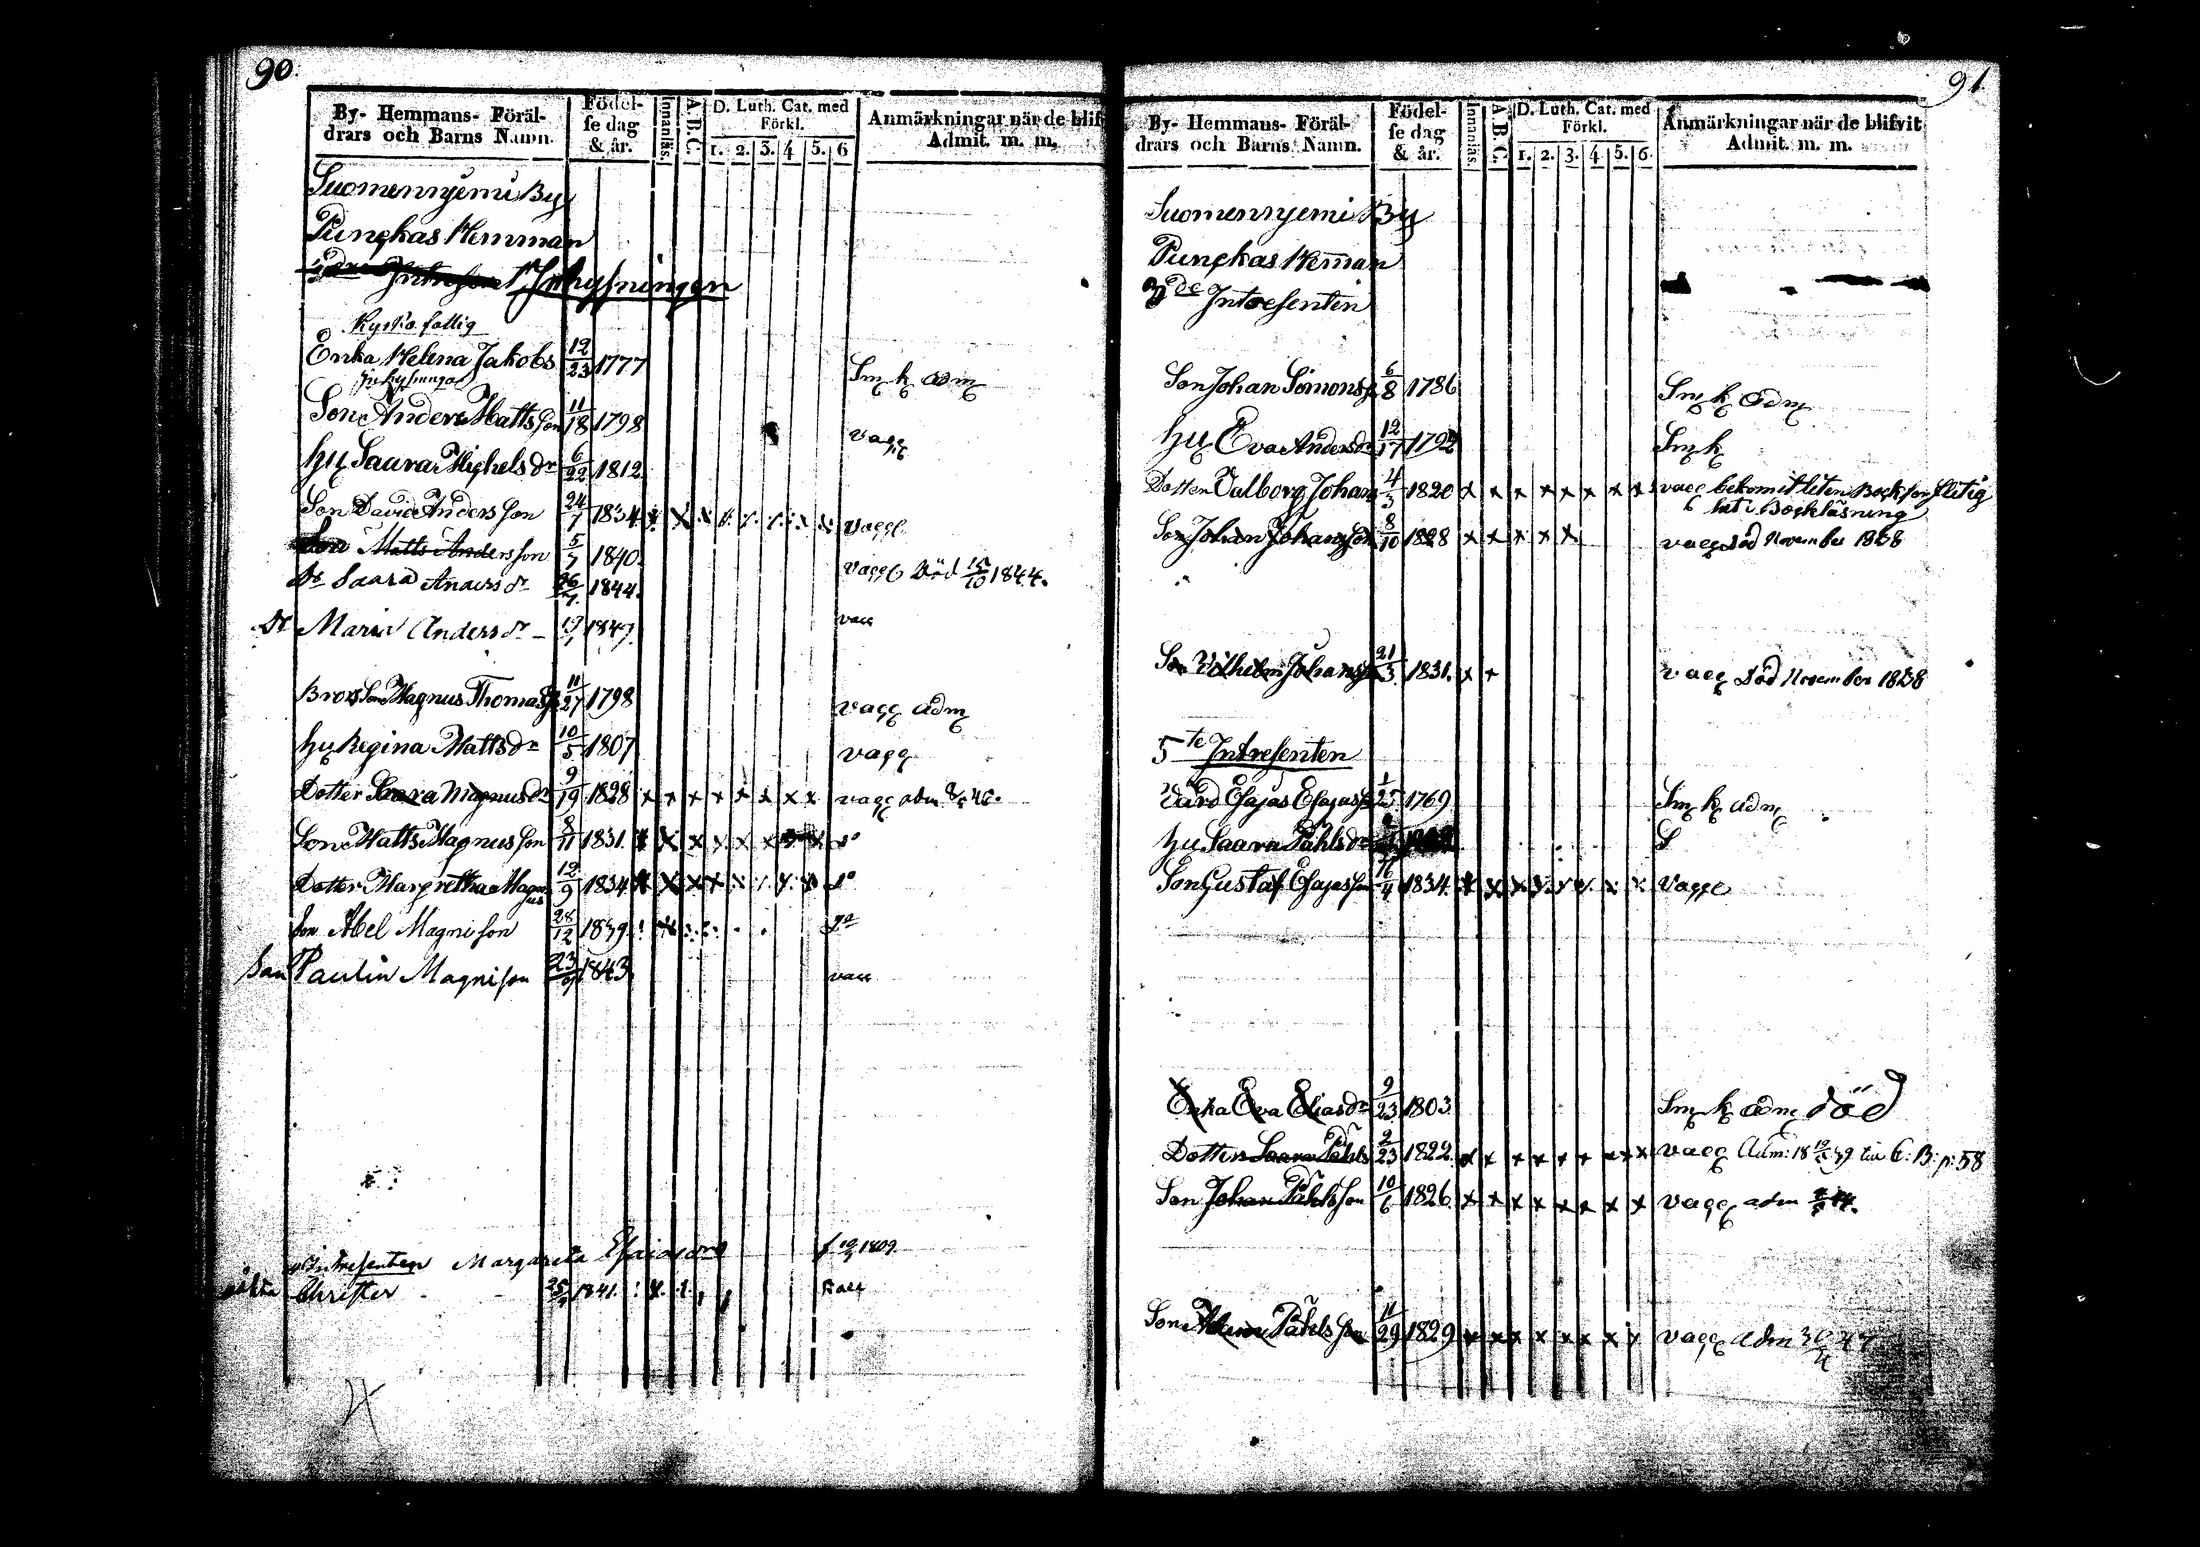 90.
By- Hemmans- Föräl-
drars och Barns Namn.
Födel-
se dag
& år.
Innanläs.
A.B.C.
D. Luth. Cat. med
Förkl.
1. 2. 3. 4 5. 6
Anmärkningar när de blif
Admit. m. m.
Suomenniemi By
Pungkas Hemman
Inhysningen
Enka Helena Jakobs 12/23 1777 Sm k adm
Son Anders Matts son 11/18 1798 vacc
hu Saara Mickels dr 6/22 1812
Son David Anders son 24/7 1834 x x x x x x x x vacc
Son Matts Andersson 5/7 1840. vacc död 15/10 1844.
Dr Saara Anders dr 26/7 1844.
Dr Maria Anders dr 1847. vacc
Brors Son Magnus Thomas 11/27 1798 vacc adm
hu Regina Matts dr 10/5 1807 vacc
Dotter Saara Magnus dr 9/19 1828 x x x x x x x x vacc adm
Son Matts Magnus son 8/11 1831. x x x x x x do
Dotter Margretha Magnus 12/9 1834 x x x x x x x x do
Son Abel Magni son 28/12 1839 do
Son Paulin Magni son 23/9 1843. vacc
Intresenten Margareta f 1809
Christer 1841. vacc
91
By- Hemmans- Föräl-
drars och Barns Namn.
Födel-
se dag
& år.
Innanläs.
A.B.C.
D. Luth. Cat. med
Förkl.
1. 2. 3. 4 5. 6.
Anmärkningar när de blifvit
Admit. m. m.
Suomenniemi By
Pungkas Heman
3de Intresenten
Son Johan Simons 6/8 1786 Sm k adm
hu Eva Anders dr 12/17 1792 Sm k
Dotter Valborg Johans 4/3 1820 x x x x x x x x vacc bekomit liten Bock för flitig
het i Bockläsning
Son Johan Johansson 8/10 1828 x x x x x vacc död November 1838
Son Vilhelm Johans 21/3 1831. x x vacc död November 1838
5te Intresenten
Värd Esajas Esajas 1/25 1769 Sm k adm
hu Saara Påhls dr S
Son Gustaf Esajasson 16/4 1834. x x x x x x x x vacc
Enka Eva Elias dr 9/23 1803. Sm k adm död
Dotter Saara Påhls 2/23 1822. x x x x x x x x vacc Adm: 18 39 C: B: p: 58
Son Johan Påhls son 10/6 1826 x x x x x x x x vacc adm
Son Påhls son 11/29 1829 x x x x x x x x vacc adm